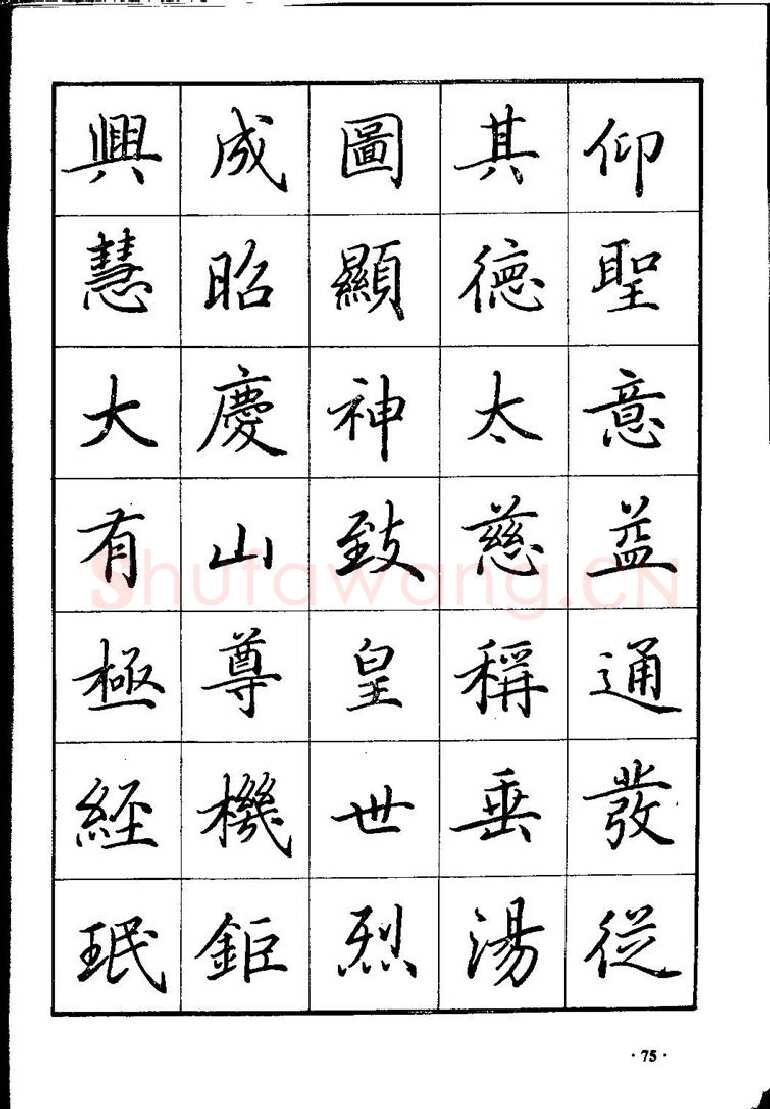 仰聖意益通發從
其德太慈稱垂湯
圖顯神致皇世烈
成昭慶山尊機鉅
興慧大有極經珉
shufawang.CN
·75·